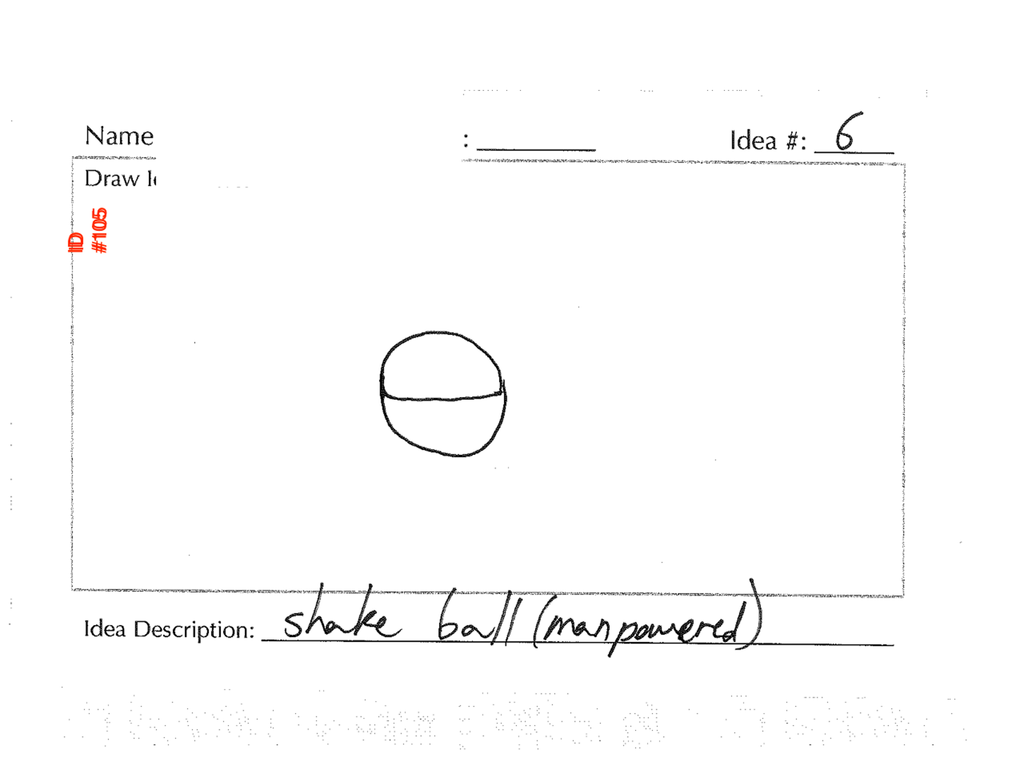 Name : Idea #: 6
Draw
ID
#105
Idea Description: shake ball (man powered)